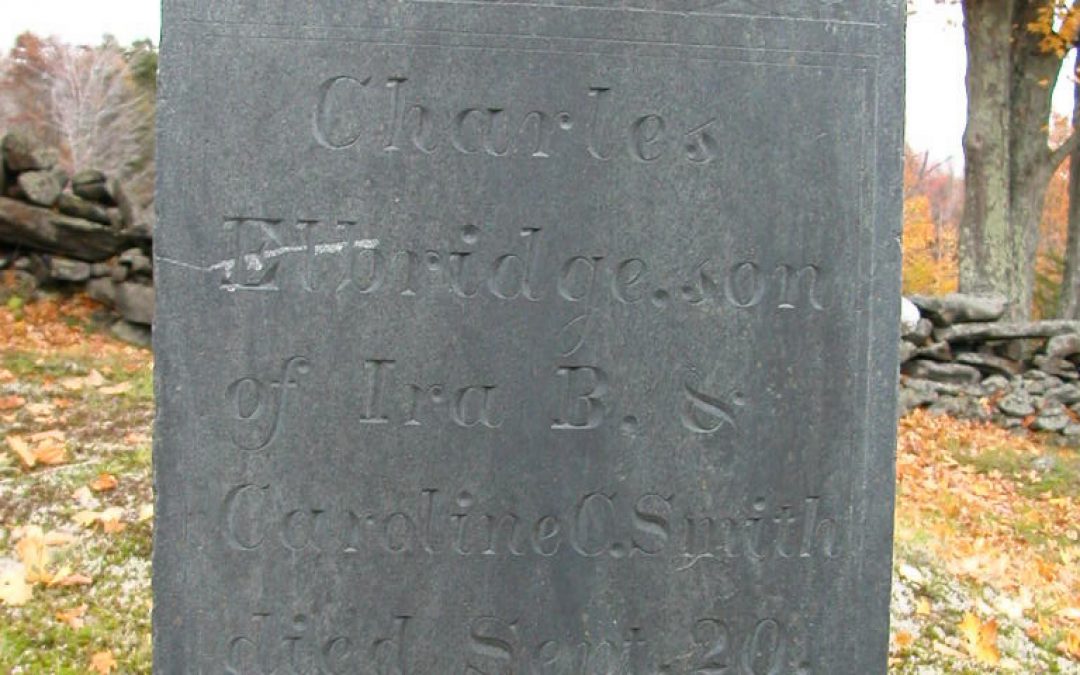 Charles
Elbridge. son
of Ira B. &
Caroline C. Smith
died Sept. 20.